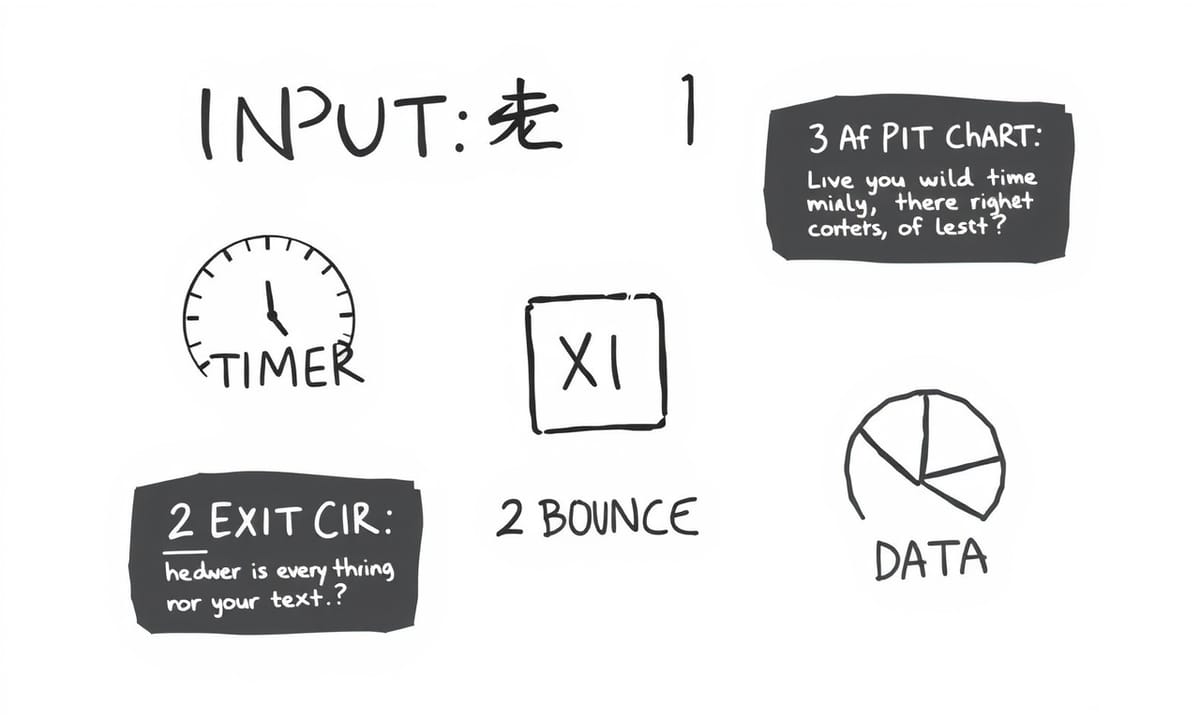 INPUT: 1
3 Af PIT ChART:
Live you wild time
mialy, there righet
corters, of lestt?
TIMER
XI
2 EXIT CIR:
hedwer is every thring
nor your text.?
2 BOUNCE
DATA